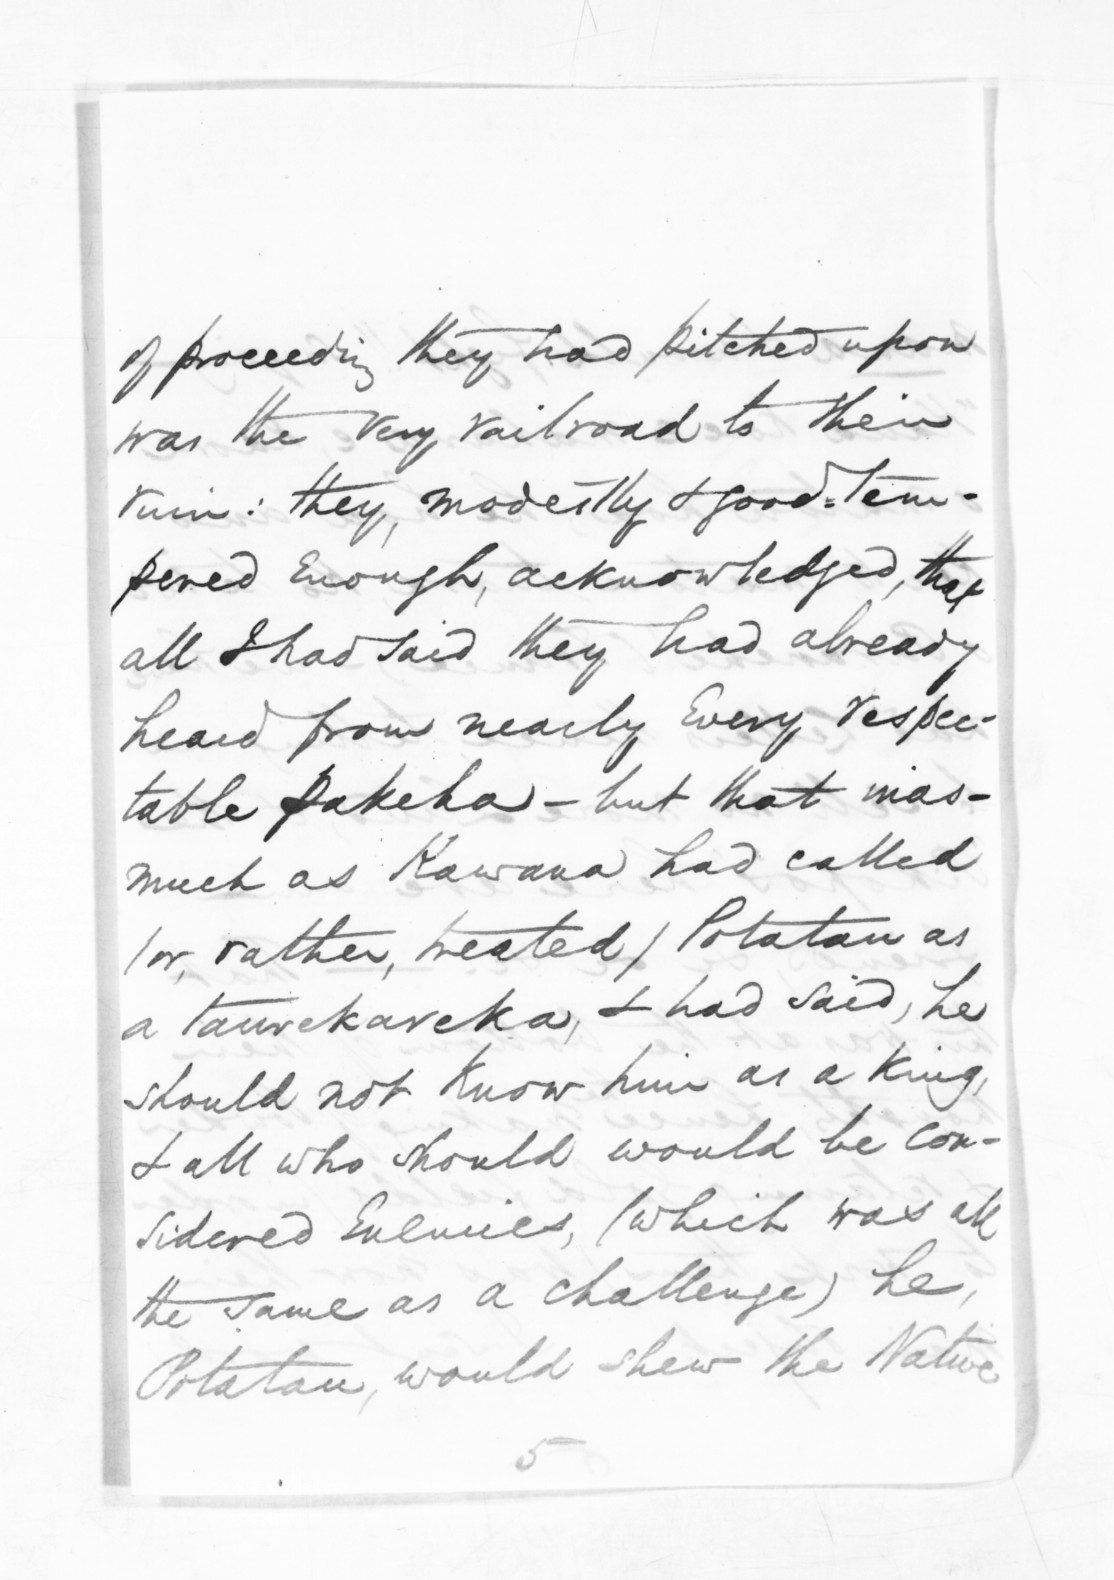 of proceeding they had pitched upon
was the very railroad to their
ruin: they, modestly & good-tem-
pered Enough, acknowledged, that
all I had said they had already
heard from nearly Every respec-
table Pakeha – but that inas-
much as Kawana had called
(or, rather, treated) Potatau as
a taurekareka, & had said, he
should not Know him as a King,
& all who should would be con-
sidered Enemies, (which was all
the same as a challenge) he,
Potatau, would shew the Native
5